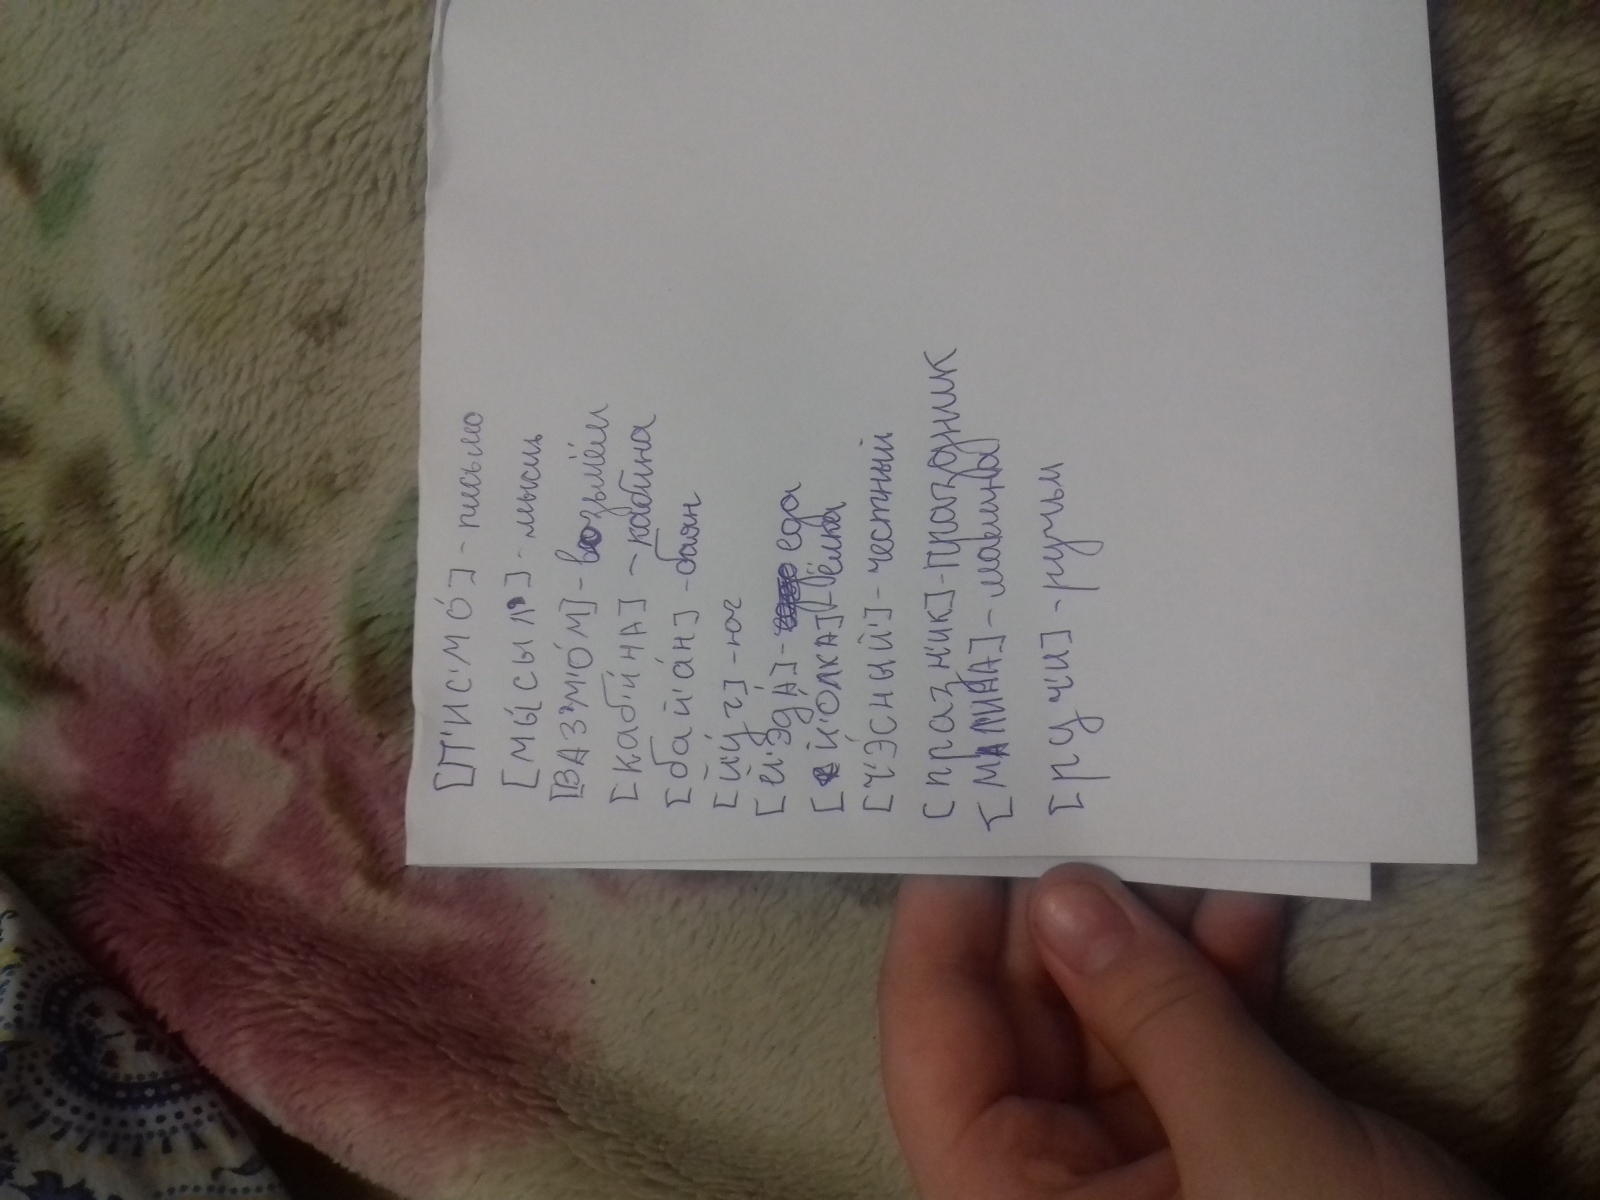 [П'ИС'МО́] - письмо
[мы́сыл'] - мысль
[ВАЗ'МО́М] - возьмём
[каб'и́нА] - кабина
[бай'а́н] - баян
[й'у́г] - юг
[й'эдА́] - еда
[й'ОЛКА] - ёлка
[ч'э́сный'] - честный
[празн'ик] - праздник
[МАЛИНА] - малина
[ручи] - ручьи